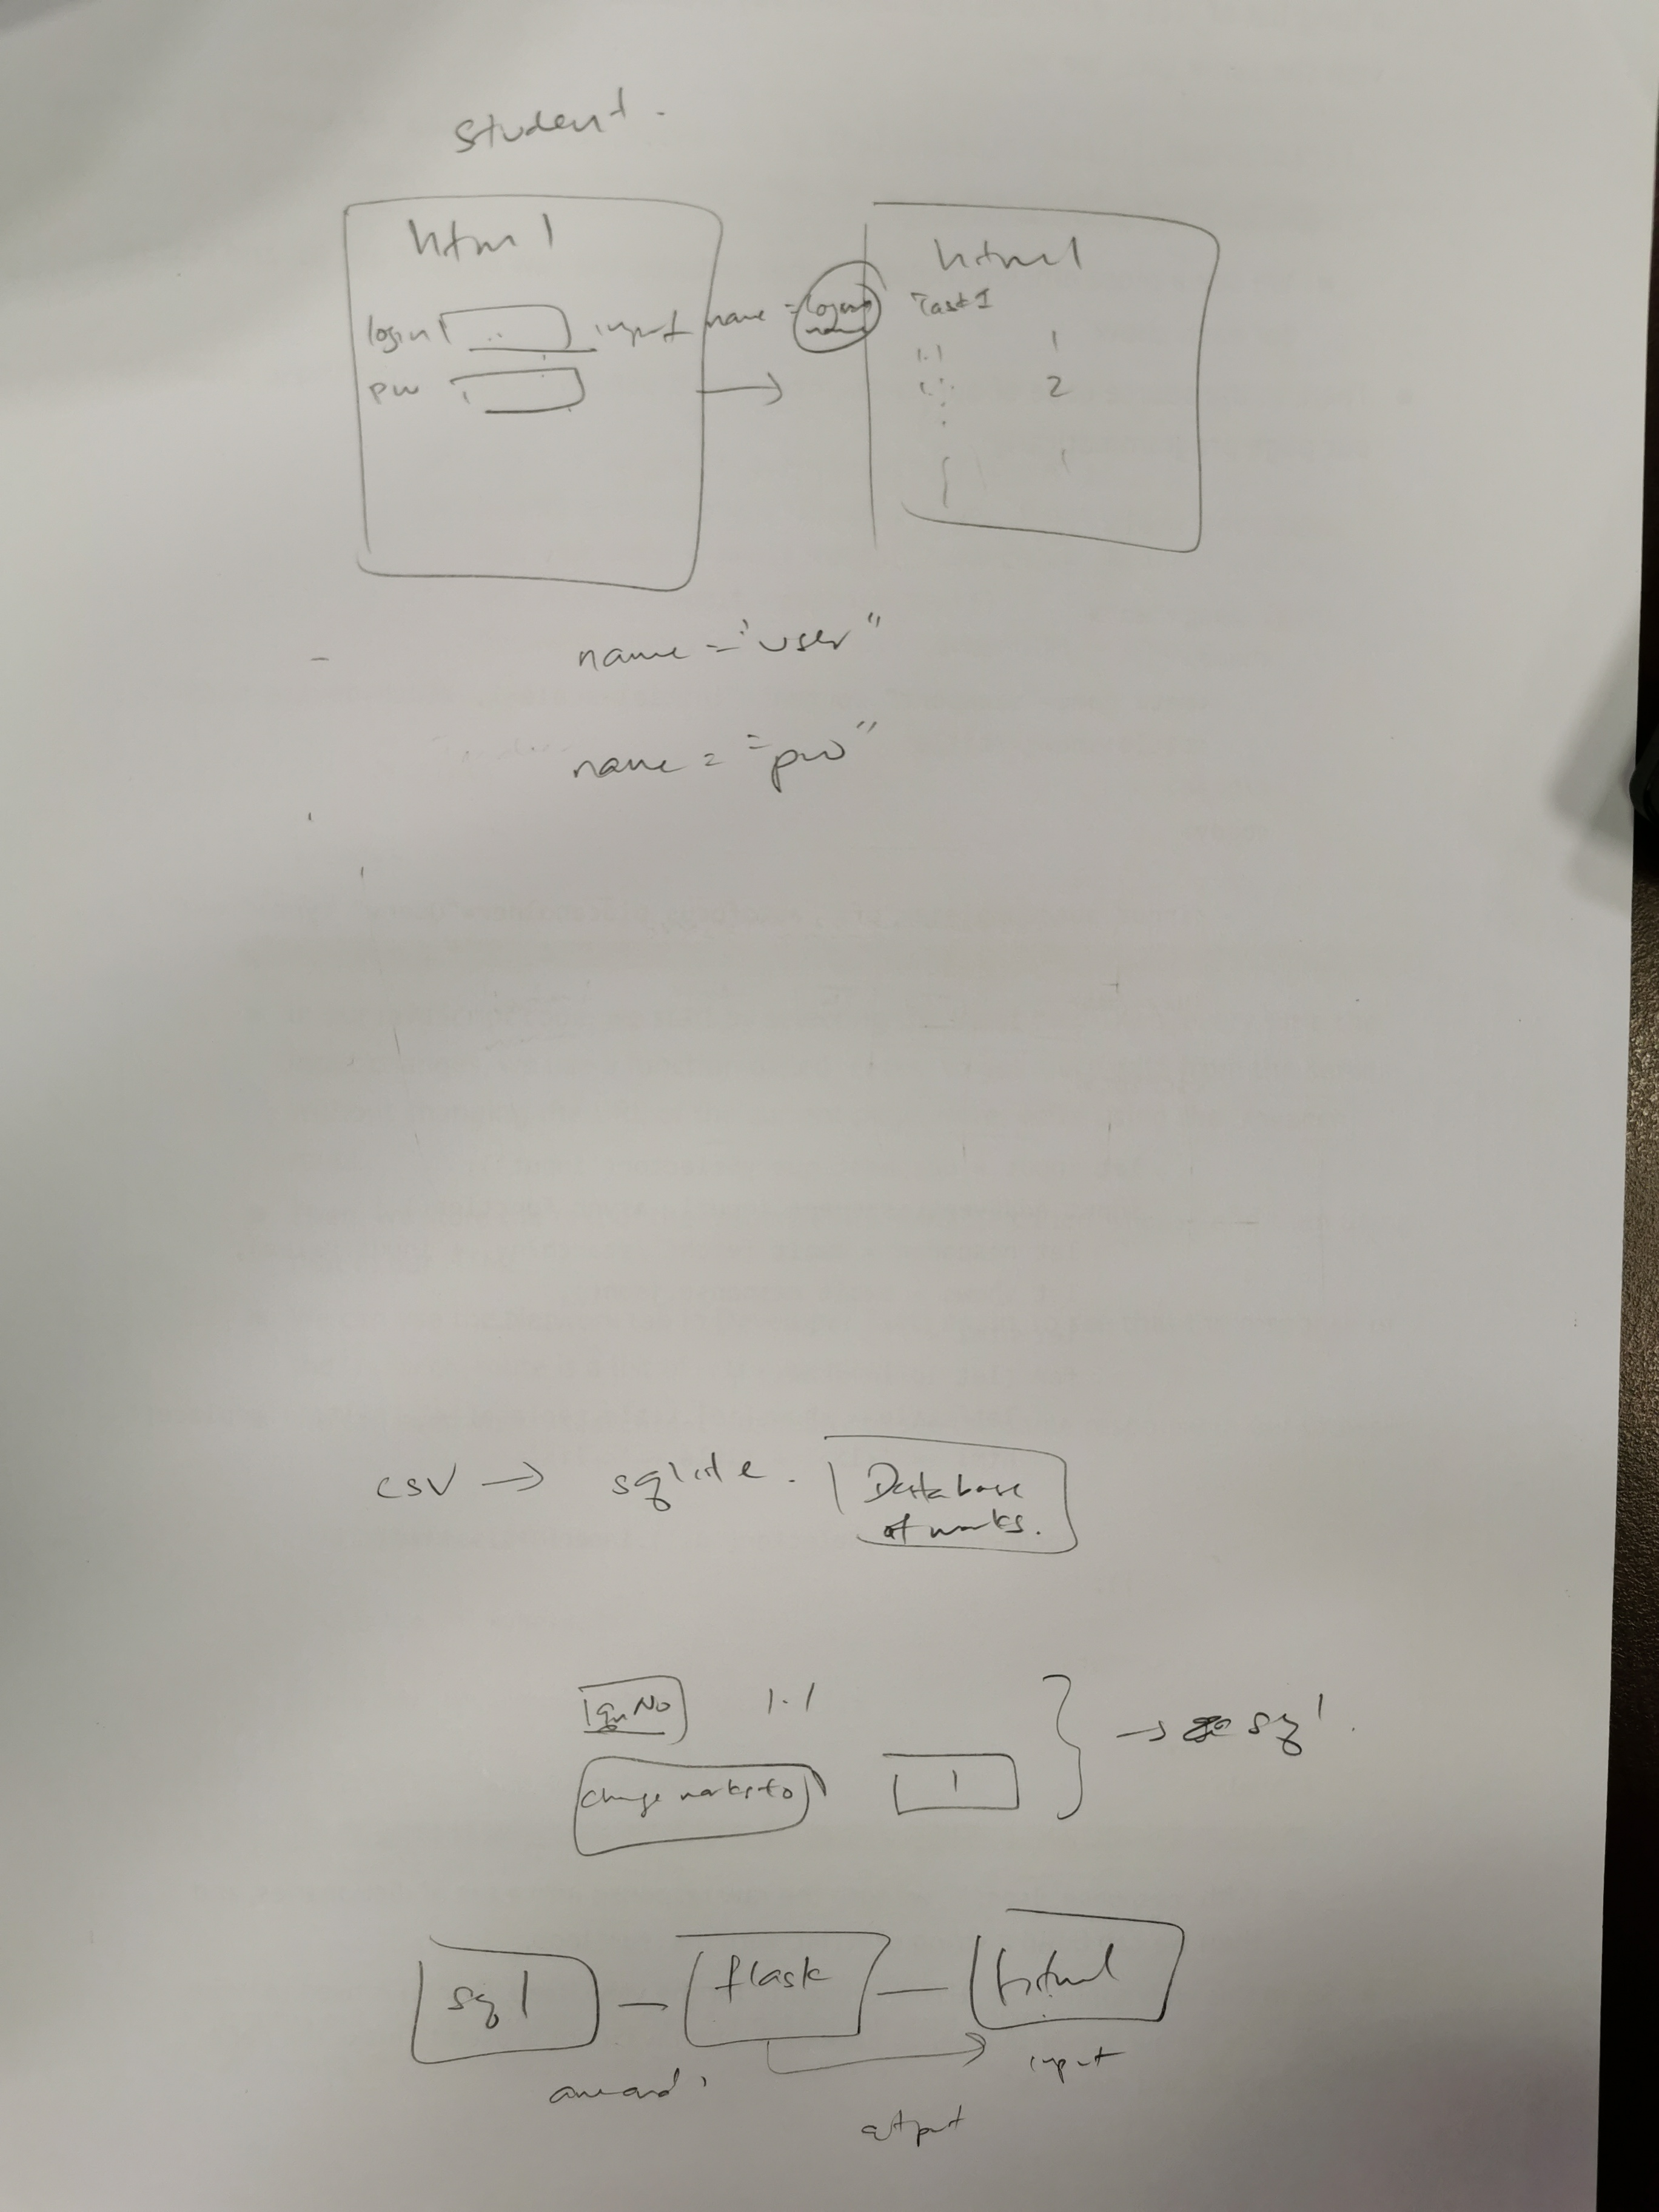 Student.
html
login
input name =
login name
pw
html
Task 1
1.1 1
2
name = "user"
name = "pw"
csv → sqlite.
Database
of marks.
qn No 1.1
change marks to 1
→ sql.
sql — flask — html
input
output